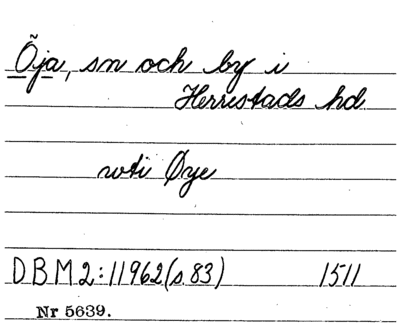 Õja, sn och by i
Herrestads hd
wti Øye
DBM2:11962(s.83) 1511
Nr 5639.